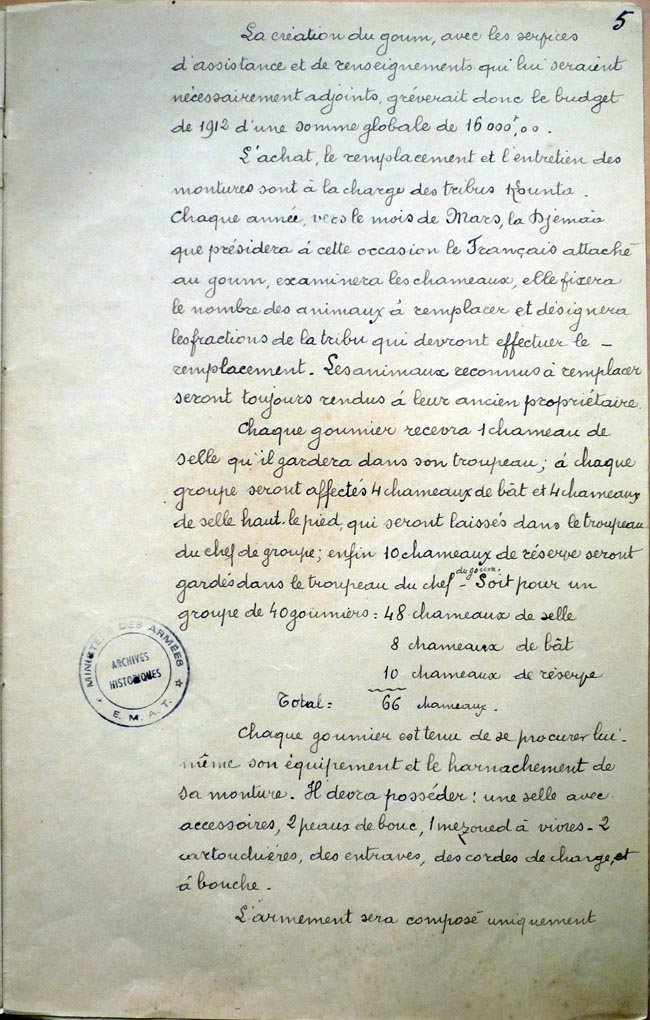 5
La création du goum, avec les services
d'assistance et de renseignements qui lui seraient
nécessairement adjoints, grèverait donc le budget
de 1912 d'une somme globale de 16000f,00.
L'achat, le remplacement et l'entretien des
montures sont à la charge des tribus Kounta.
Chaque année, vers le mois de Mars, la Djemaa
que présidera à cette occasion le Français attaché
au goum, examinera les chameaux, elle fixera
le nombre des animaux à remplacer et désignera
les fractions de la tribu qui devront effectuer le –
remplacement. Les animaux reconnus à remplacer
seront toujours rendus à leur ancien propriétaire.
Chaque goumier recevra 1 chameau de
selle qu'il gardera dans son troupeau; à chaque
groupe seront affectés 4 chameaux de bât et 4 chameaux
de selle haut-le pied, qui seront laissés dans le troupeau
du chef de groupe; enfin 10 chameaux de réserve seront
gardés dans le troupeau du chef du goum. – Soit pour un
groupe de 40 goumiers : 48 chameaux de selle
8 chameaux de bât
10 chameaux de réserve
Total : 66 chameaux.
Chaque goumier est tenu de se procurer lui-
même son équipement et le harnachement de
sa monture. Il devra posséder : une selle avec
accessoires, 2 peaux de bouc, 1 mezoued à vivres – 2
cartouchières, des entraves, des cordes de charge, et
à bouche –
L'armement sera composé uniquement
MINISTÈRE DES ARMÉES
ARCHIVES
HISTORIQUES
E.M.A.T.